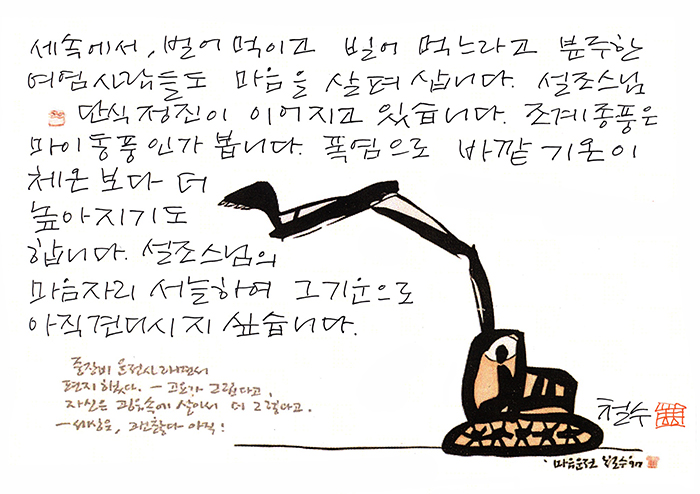 세속에서, 벌어 먹이고 빌어 먹느라고 분주한
여염 사람들도 마음을 살펴 삽니다. 설조스님
단식정진이 이어지고 있습니다. 조계종풍은
마이동풍인가 봅니다. 폭염으로 바깥 기온이
체온보다 더
높아지기도
합니다. 설조스님의
마음자리 서늘하여 그 기운으로
아직 견디시지 싶습니다.
중장비 운전사라면서
편지하셨다. — 고요가 그립다고,
자신은 굉음속에 살아서 더 그렇다고.
— 세상은, 괜찮다 아직!
철수
마음운전 철수 97